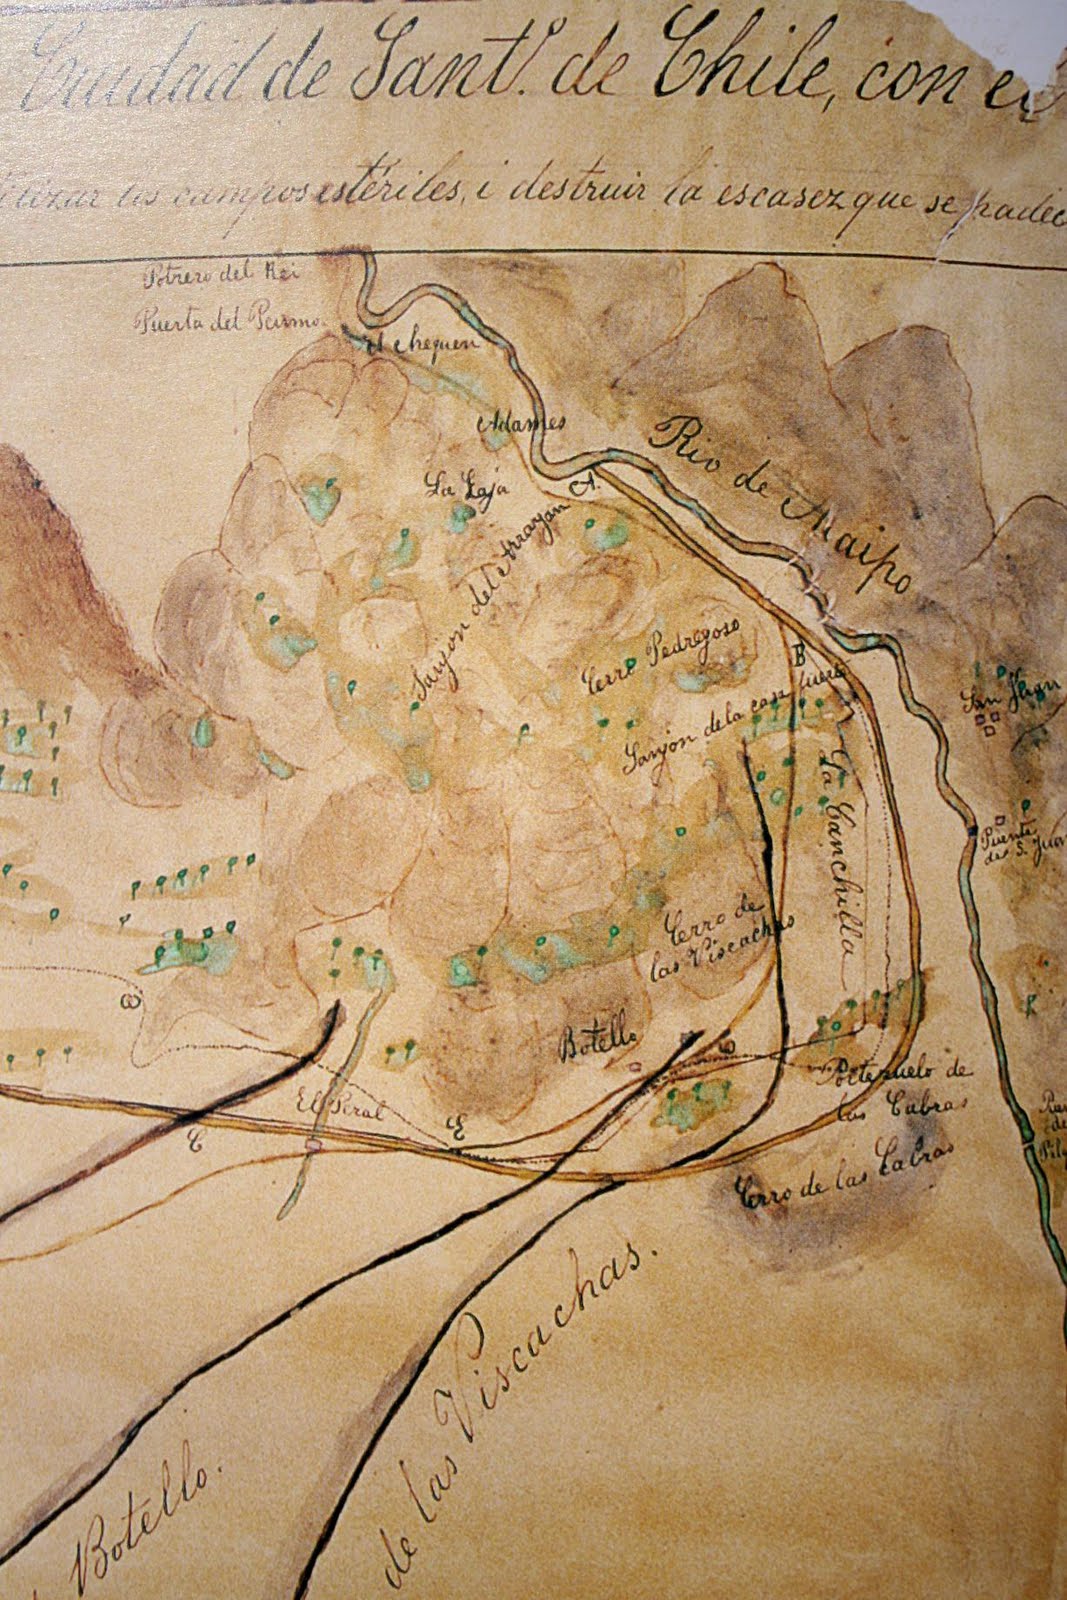 Ciudad de Sant.º de Chile, con el
los campos estériles, i destruir la escasez que se padec
Potrero del Rei
Puerta del
El Chequen
Adames
Rio de Maipo
La Laja
A.
Sanjon del Arrayan
Cerro Pedregoso
B
Sanjon de la casa
San Juan
La Canchilla
Puente
de S. Juan
Cerro de
las Viscachas
Botello
Portezuelo de
las Cabras
El Peral
E
C
Cerro de las Cabras
de las Viscachas.
Botello.